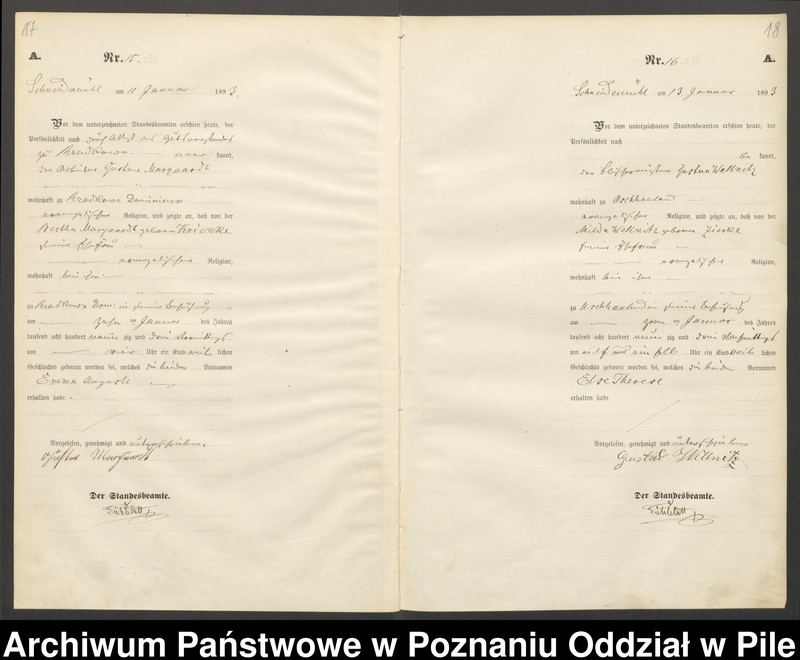 17
A.
Nr. 15.
Schneidemühl am 11 Januar 1893.
Vor dem unterzeichneten Standesbeamten erschien heute, der
Persönlichkeit nach durch Attest des Gutsvorstandes
zu kannt,
der Arbeiter Gustav Marquardt
wohnhaft zu Dominium
evangelischer Religion, und zeigte an, daß von der
Bertha Marquardt geborene
seiner Ehefrau
evangelischer Religion,
wohnhaft bei ihm
zu Dom. in seiner Behausung
am zehn ten Januar des Jahres
tausend acht hundert neunzig und drei Vormittags
um vier Uhr ein Kind weiblichen
Geschlechts geboren worden sei, welches die beiden Vornamen
Emma Auguste
erhalten habe.
Vorgelesen, genehmigt und unterschrieben.
Gustav Marquardt
Der Standesbeamte.
18
Nr. 16
A.
Schneidemühl am 13 Januar 1893
Vor dem unterzeichneten Standesbeamten erschien heute, der
Persönlichkeit nach
be kannt,
der Gustav Wellnitz
wohnhaft zu
evangelischer Religion, und zeigte an, daß von der
Wellnitz geborene Zierke
seiner Ehefrau
evangelischer Religion,
wohnhaft bei ihm
zu in seiner Behausung
am ten Januar des Jahres
tausend acht hundert neunzig und drei
um elf und ein halb Uhr ein Kind weiblichen
Geschlechts geboren worden sei, welches die beiden Vornamen
Else Therese
erhalten habe
Vorgelesen, genehmigt und unterschrieben
Gustav Wellnitz
Der Standesbeamte.
Archiwum Państwowe w Poznaniu Oddział w Pile